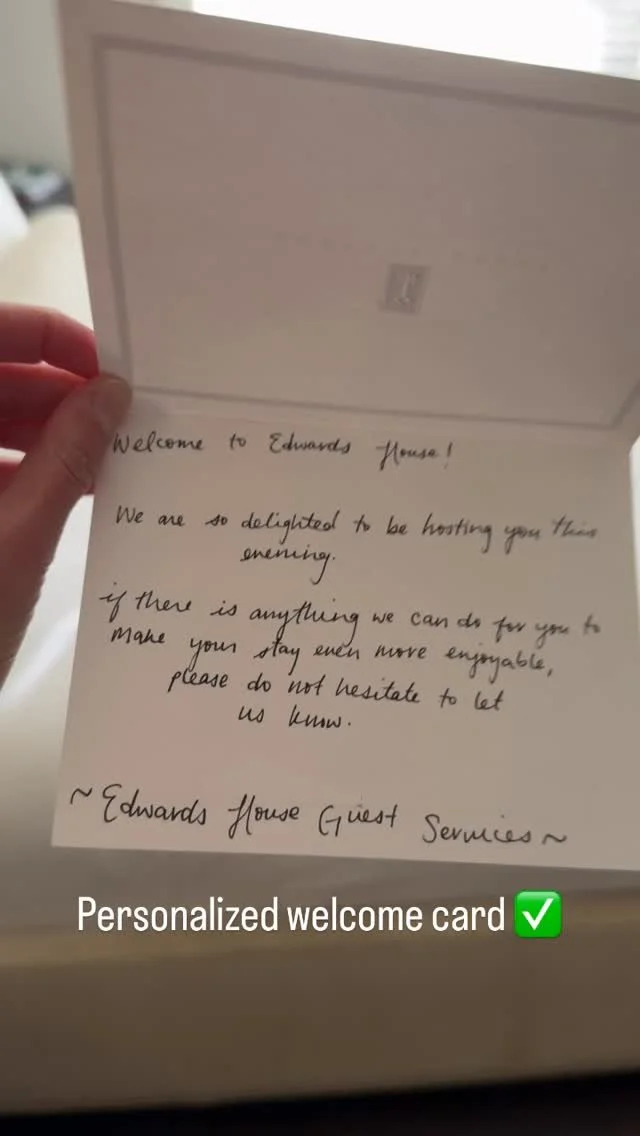 Welcome to Edwards House!
We are so delighted to be hosting you this
evening.
if there is anything we can do for you to
make your stay even more enjoyable,
please do not hesitate to let
us know.
~Edwards House Guest Services~
Personalized welcome card ✅